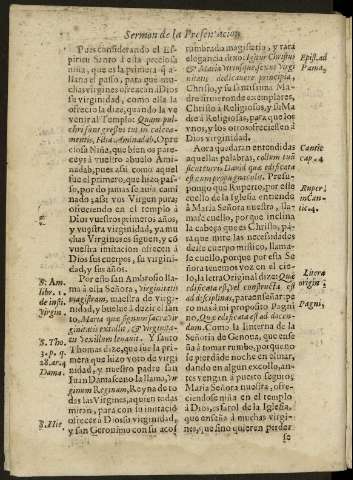 Sermon de la Presentacion
Pues considerando el Es-
piritu Santo à esta preciosa
niña, que es la primera q̃ a-
llana el passo, para que mu-
chas virgines ofrezcan à Dios
su virginidad, como ella la
ofrecio la dize, quando la ve
venir al Templo: Quam pul-
chri sunt gressus tui in calcea-
mentis, Filia Aminadab. O pre-
ciosa Niña, que bien os pare-
ceys à vuestro abuelo Ami-
nadab, pues assi como aquel
fue el primero, que hizo pas-
so, por do jamas se auia cami
nado; assi vos Virgen pura,
ofreciendo en el templo à
Dios vuestros primeros años,
y vuestra virginidad, ya mu
chas Virgines siguen, y cõ
vuestra imitacion ofrecen à
Dios sus cuerpos, su virgini-
dad, y sus años.
Por esso san Ambrosio lla-
ma à esta Señora, virginitatis
magistram, maestra de virgi-
nidad, y buelue à dezir el san
to. Maria que signum sacra vir
ginitatis extulit, & virginita-
tis vexillum leuauit. Y santo
Thomas dize, que fue la pri-
mera que hizo voto de virgi
nidad, y nuestro padre san
Juan Damasceno la llama, Vir
ginum Reginam, Reyna de to
das las Virgines, a quien todas
miran, para con su imitació
ofrecer à Dios su virginidad,
y san Geronimo con su acos
S. Am.
libr. 1.
de insti.
virgin.
S. Tho.
3. p. q.
28. ar. 4
Dama.
S. Hie.
tumbrada magisteria, y rara
elegancia dixo: Igitur Christus
& Maria vtriusque sexus virgi
nitatis dedicauere principia,
Christo, y su santissima Ma-
dre fueron de exemplares,
Christo à Religiosos, y su Ma
dre à Religiosas, para que los
vnos, y los otros ofreciessen à
Dios virginidad.
Aora quedaran entendidas
aquellas palabras, collum tuũ
sicut turris Dauid quæ ædificata
est cum propugnaculis. Presu-
pongo que Ruperto, por este
cuello de la Iglesia entiende
à Maria Señora nuestra, lla-
mase cuello, porque inclina
la cabeça que es Christo, pa-
raque mire las necesidades
deste cuerpo mistico, llama-
se cuello, porque por esta Se
ñora tenemos voz en el cie-
lo, la letra Original dize: Quæ
ædificata est, vel constructa est
ad disciplinas, para enseñar: pe
ro mas à mi proposito Pagni
no, Quæ ædificata est ad docen-
dum. Como la linterna de la
Señoria de Genoua, que ense
ña à tomar rumbo, porque no
se pierda de noche en el mar,
dando en algun escollo, an-
tes vengan à puerto seguro;
Maria Señora nuestra, ofre-
ciendose niña en el templo
à Dios, es farol de la Iglesia,
que enseña à muchas virgi-
nes, que sino quieren perder
se
Epist. ad
Cantic
cap. 4
Ruper.
in Can-
tic. 4.
Litera
origin
Pagni.